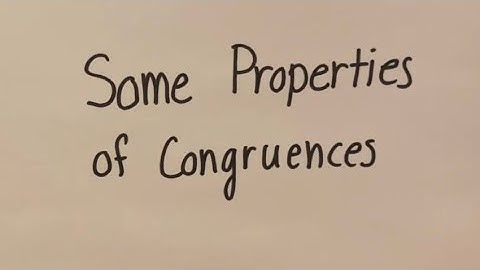 Some Properties
of Congruences